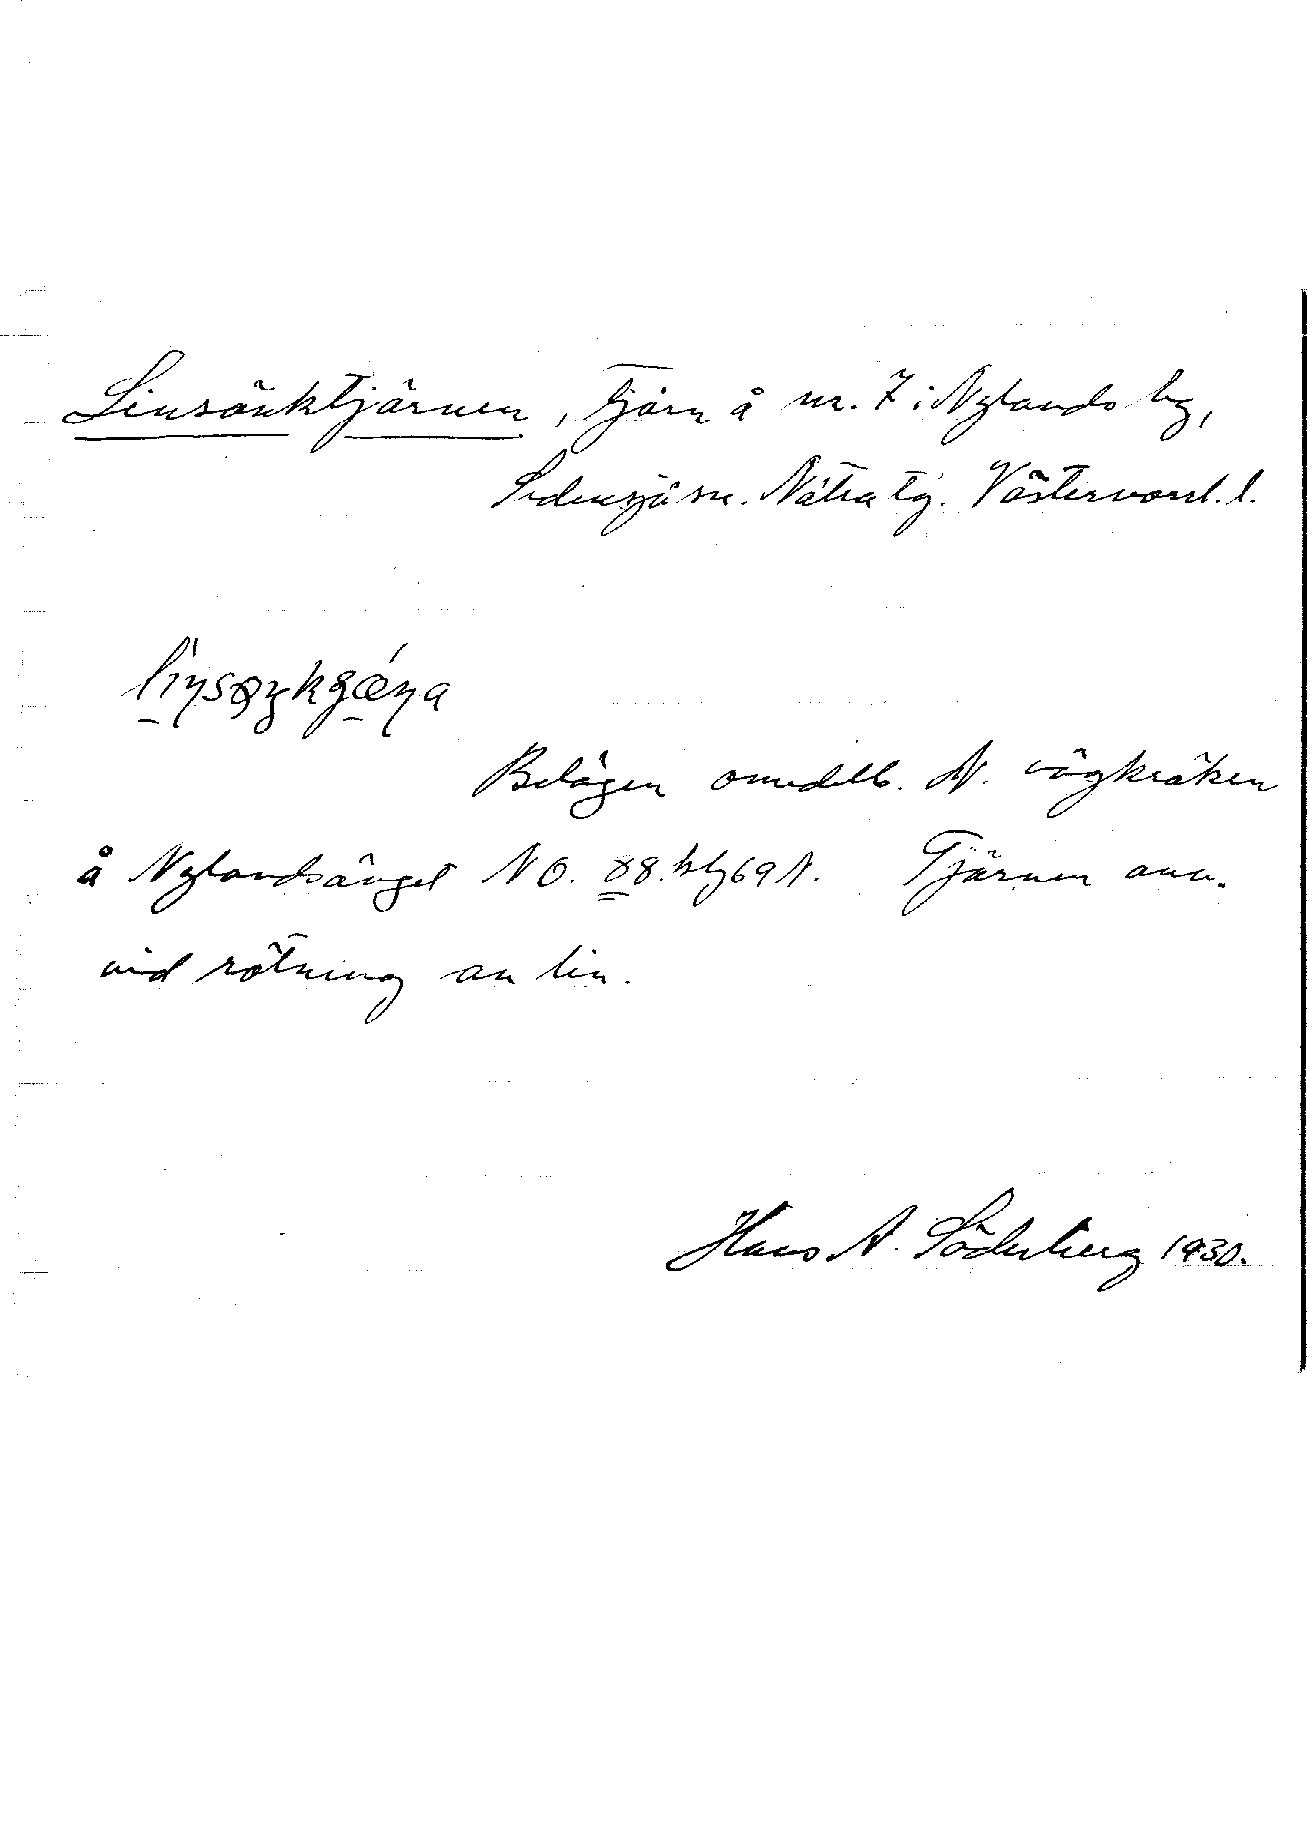 Linsänktjärnen, tjärn å nr. 7 i Nylands by,
Sidensjö sn. Nätra tg. Västernorrl. l.
Belägen omedelb. N. vägkröken
å Nylandsänget NO. 88. Tjärnen anv.
vid rötning av lin.
Hans A. Söderberg 1930.